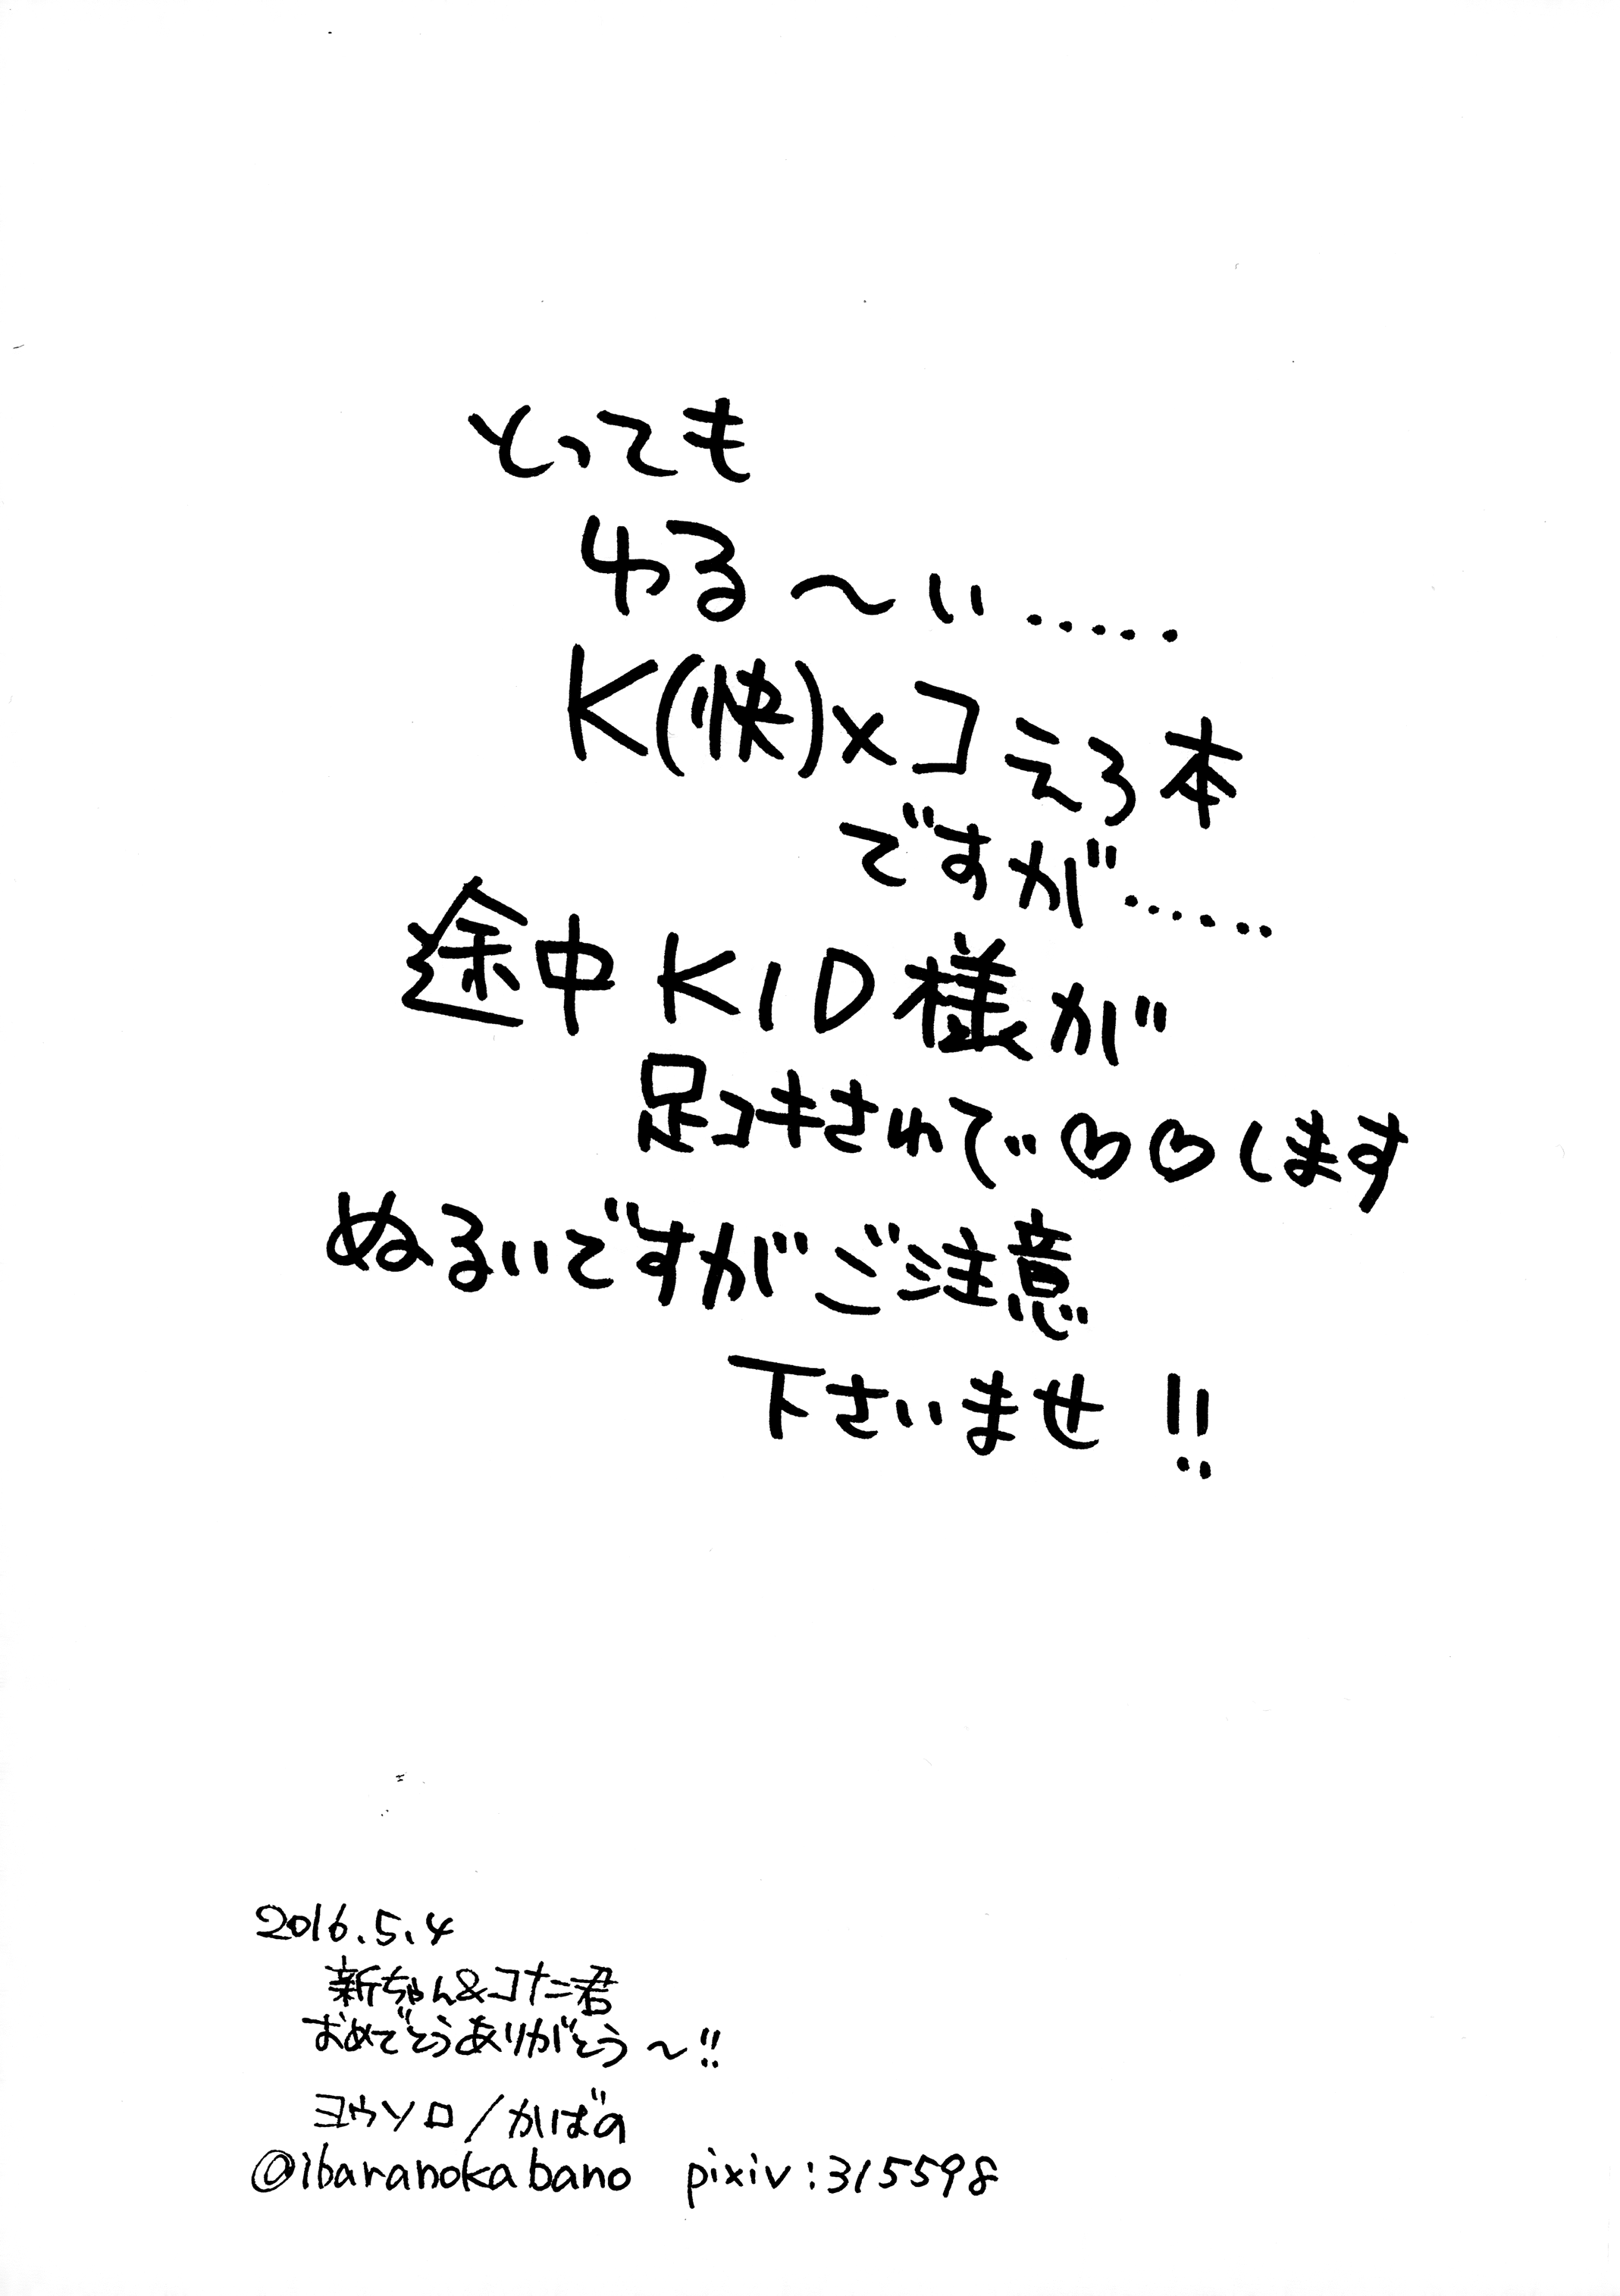 とっても
ゆる〜い.....
K(快)×コえろ本
ですが......
途中KID様が
足コキされて♡♡します
ぬるいですがご注意
下さいませ!!
2016.5.4
新ちゃん&コナン君
おめでとうありがとう〜!!
ヨウソロ/かばの
@ibaranokabano pixiv:315598